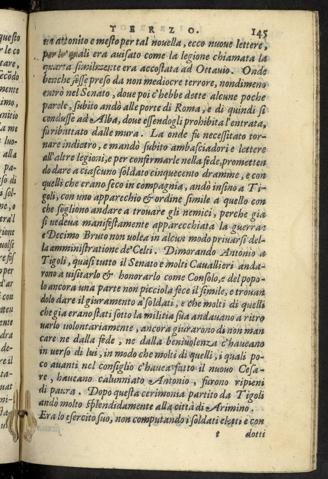 TERZO. 145
un attonito e mesto per tal novella, ecco nuove lettere,
per le quali era avisato come la legione chiamata la
quarta similmente era accostata ad Ottavio. Onde
benche fosse preso da non mediocre terrore, nondimeno
entrò nel Senato, dove poi c'hebbe dette alcune poche
parole, subito andò alle porte di Roma, e di quindi si
condusse ad Alba, dove essendogli prohibita l'entrata,
fu ributtato dalle mura. La onde fu necessitato tor-
nare indietro, e mandò subito ambasciadori e lettere
all'altre legioni, e per confermarle nella fede, prometten
do dare a ciascuno soldato cinquecento dramme, e con
quelli che erano seco in compagnia, andò insino a Ti-
goli, con uno apparechio & ordine simile a quello con
che sogliono andare a trouare gli nemici, perche gia
si vedeua manifestamente apparecchiata la guerra:
e Decimo Bruto non uolea in alcun modo priuarsi del-
la amministratione de'Celti. Dimorando Antonio a
Tigoli, quasi tutto il Senato e molti Cauallieri anda-
rono a uisitarlo & honorarlo come Consolo, e del popo-
lo ancora una parte non picciola fece il simile, e trouan
dolo dare il giuramento a'soldati, e che molti di quelli
che gia erano stati sotto la militia sua andauano a ritro
uarlo uolontariamente, ancora giurarono di non man
care ne dalla fede, ne dalla beniuolenza c'haueano
in uerso di lui, in modo che molti di quelli, i quali po-
co auanti nel consiglio c'hauea fatto il nuouo Cesa-
re, haueano calunniato Antonio, furono ripieni
di paura. Dopo questa cerimonia partito da Tigoli
andò molto splendidamente alla città di Arimino.
Era lo esercito suo, non computando i soldati eletti e con
t dotti